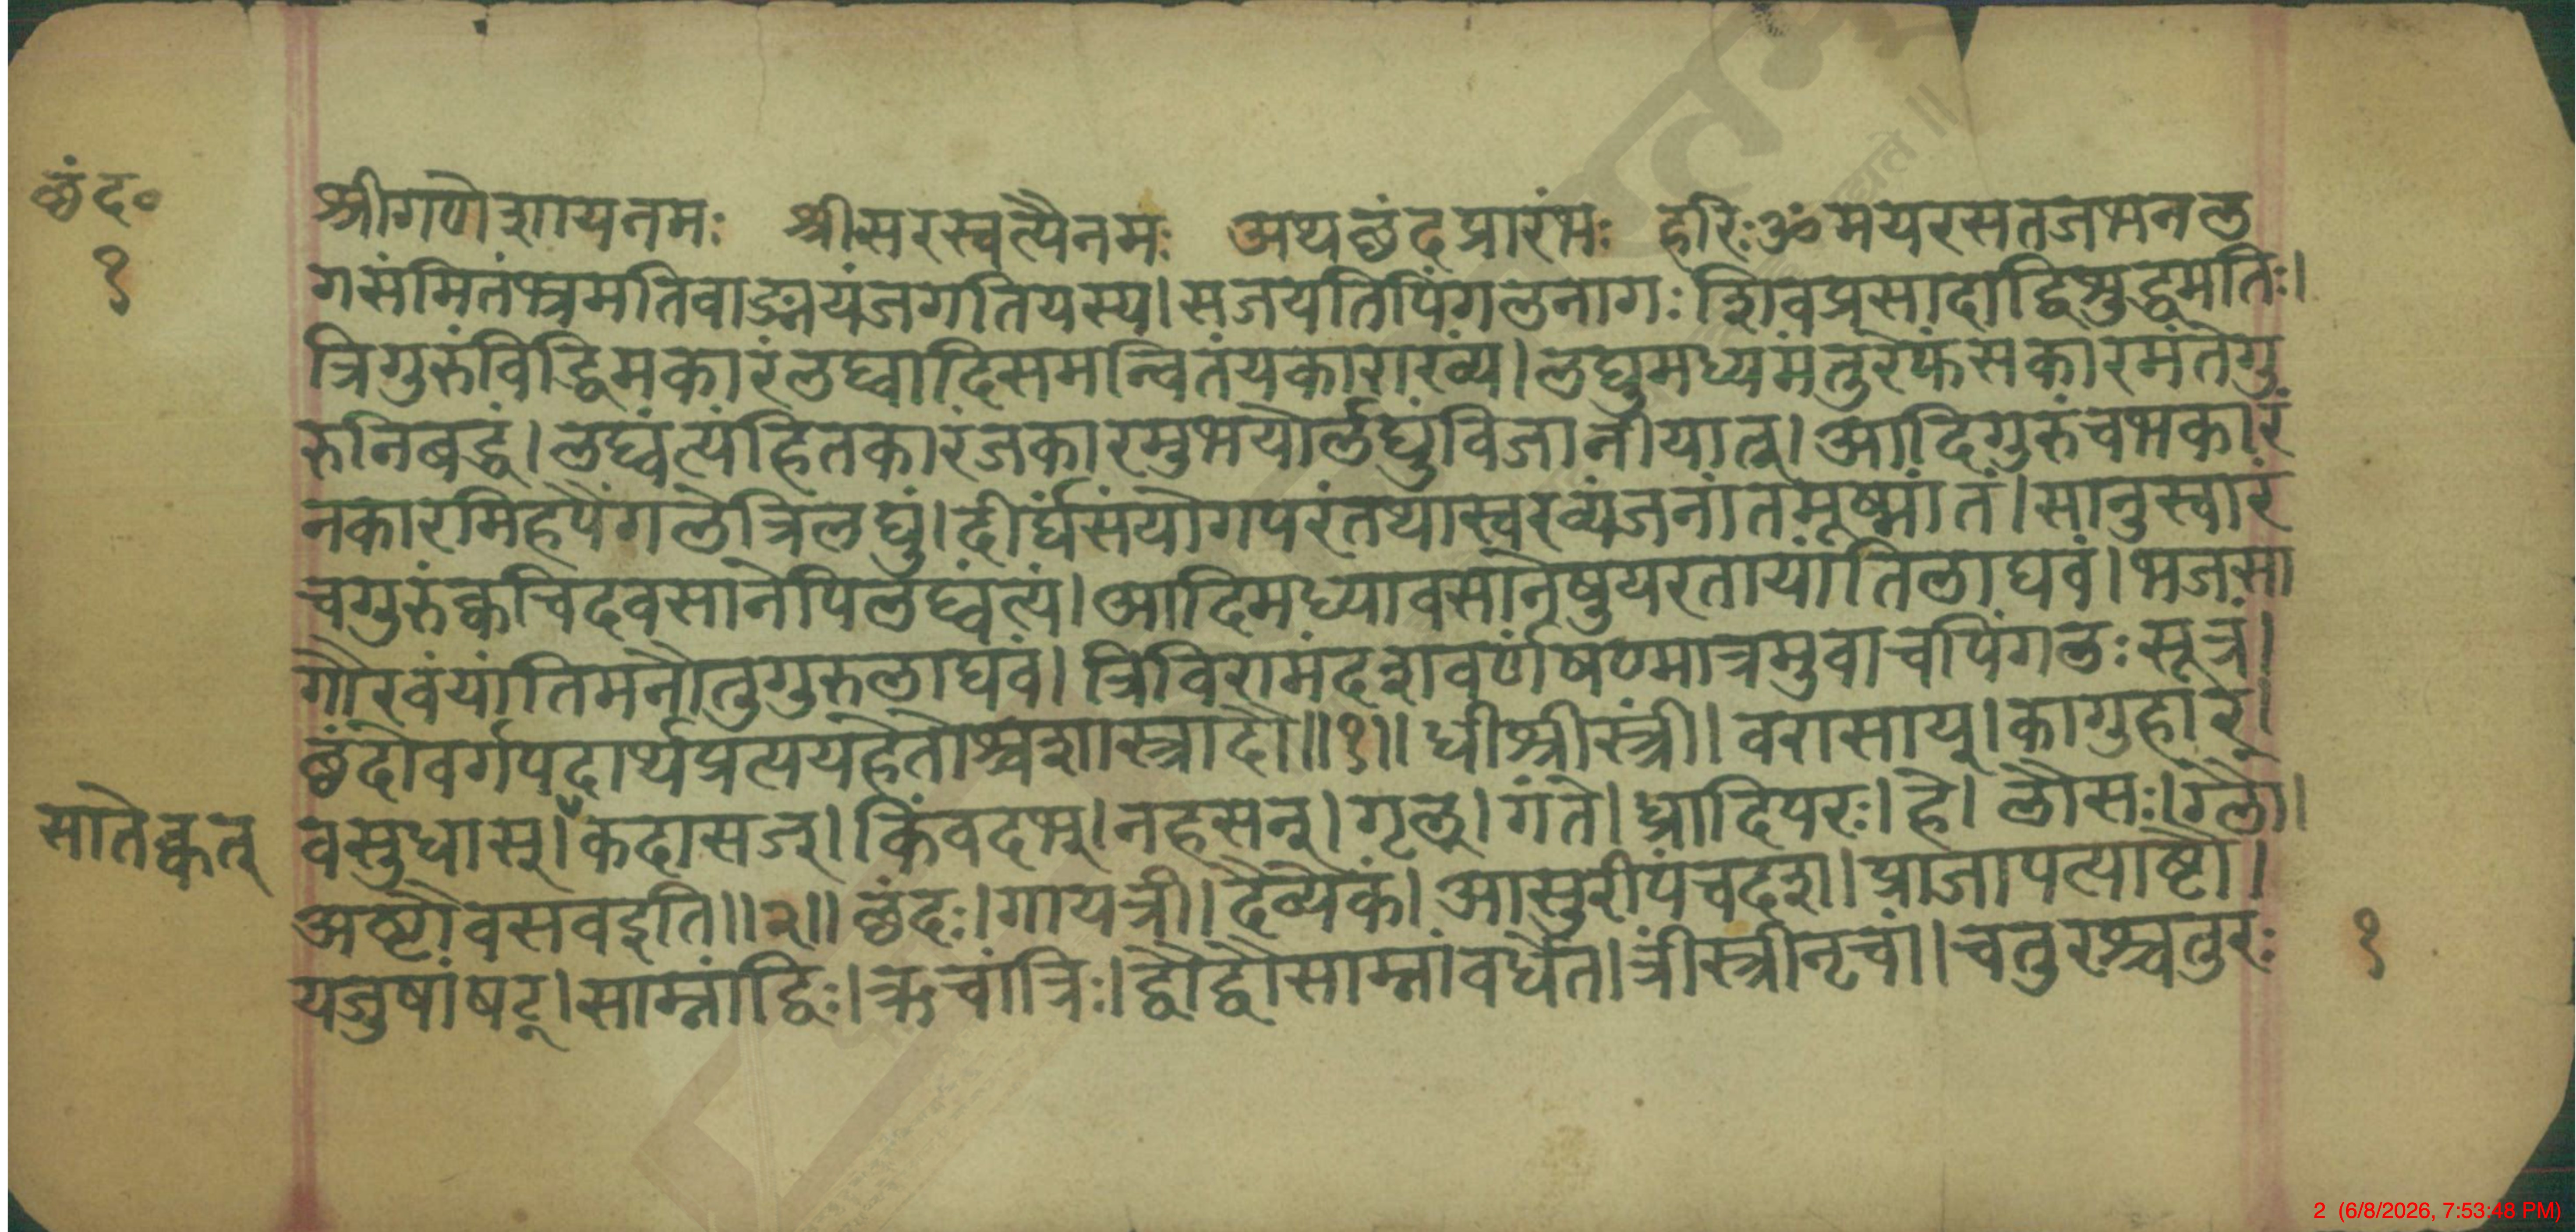 छंद०
१
श्रीगणेशायनमः श्रीसरस्वत्यैनमः अथछंदप्रारंभः हरिःॐमयरसतजभनल
गसंमितंभ्रमतिवाङ्मयंजगतियस्य।सजयतिपिंगलनागःशिवप्रसादाद्विशुद्धमतिः।
त्रिगुरुंविद्धिमकारंलघ्वादिसमन्वितंयकाराख्यं।लघुमध्यमंतुरेफंसकारमंतेगु
रुनिबद्धं।लघ्वंत्यंहितकारंजकारमुभयोर्लघुंविजानीयात्।आदिगुरुंचभकारं
नकारमिहपैंगलेत्रिलघुं।दीर्घंसंयोगपरंतथास्वरव्यंजनांतमूष्मांतं।सानुस्वारं
चगुरुंक्वचिदवसानेपिलघ्वंत्यं।आदिमध्यावसानेषुयरतायांतिलाघवं।भजसा
गौरवंयांतिमनौतुगुरुलाघवं।त्रिविरामंदशवर्णंषण्मात्रमुवाचपिंगलःसूत्रं।
छंदोवर्गपदार्थप्रत्ययहेतोश्चशास्त्रादौ॥१॥धीश्रीस्त्री।वरासाय्।कागुहार्।
वसुधास्।कदासज्।किंवदभ्।नहसन्।गृल्।गंते।ध्रादिपरः।हे।लौसः।ग्लौ।
सातेक्वत्
अष्टौवसवइति॥२॥छंदः।गायत्री।दैव्येकं।आसुरीपंचदश।प्राजापत्याष्टौ।
यजुषांषट्।साम्नांद्विः।ऋचांत्रिः।द्वौद्वौसाम्नांवर्धेत।त्रींस्त्रीनृचां।चतुरश्चतुरः
१
2 (6/8/2026, 7:53:48 PM)